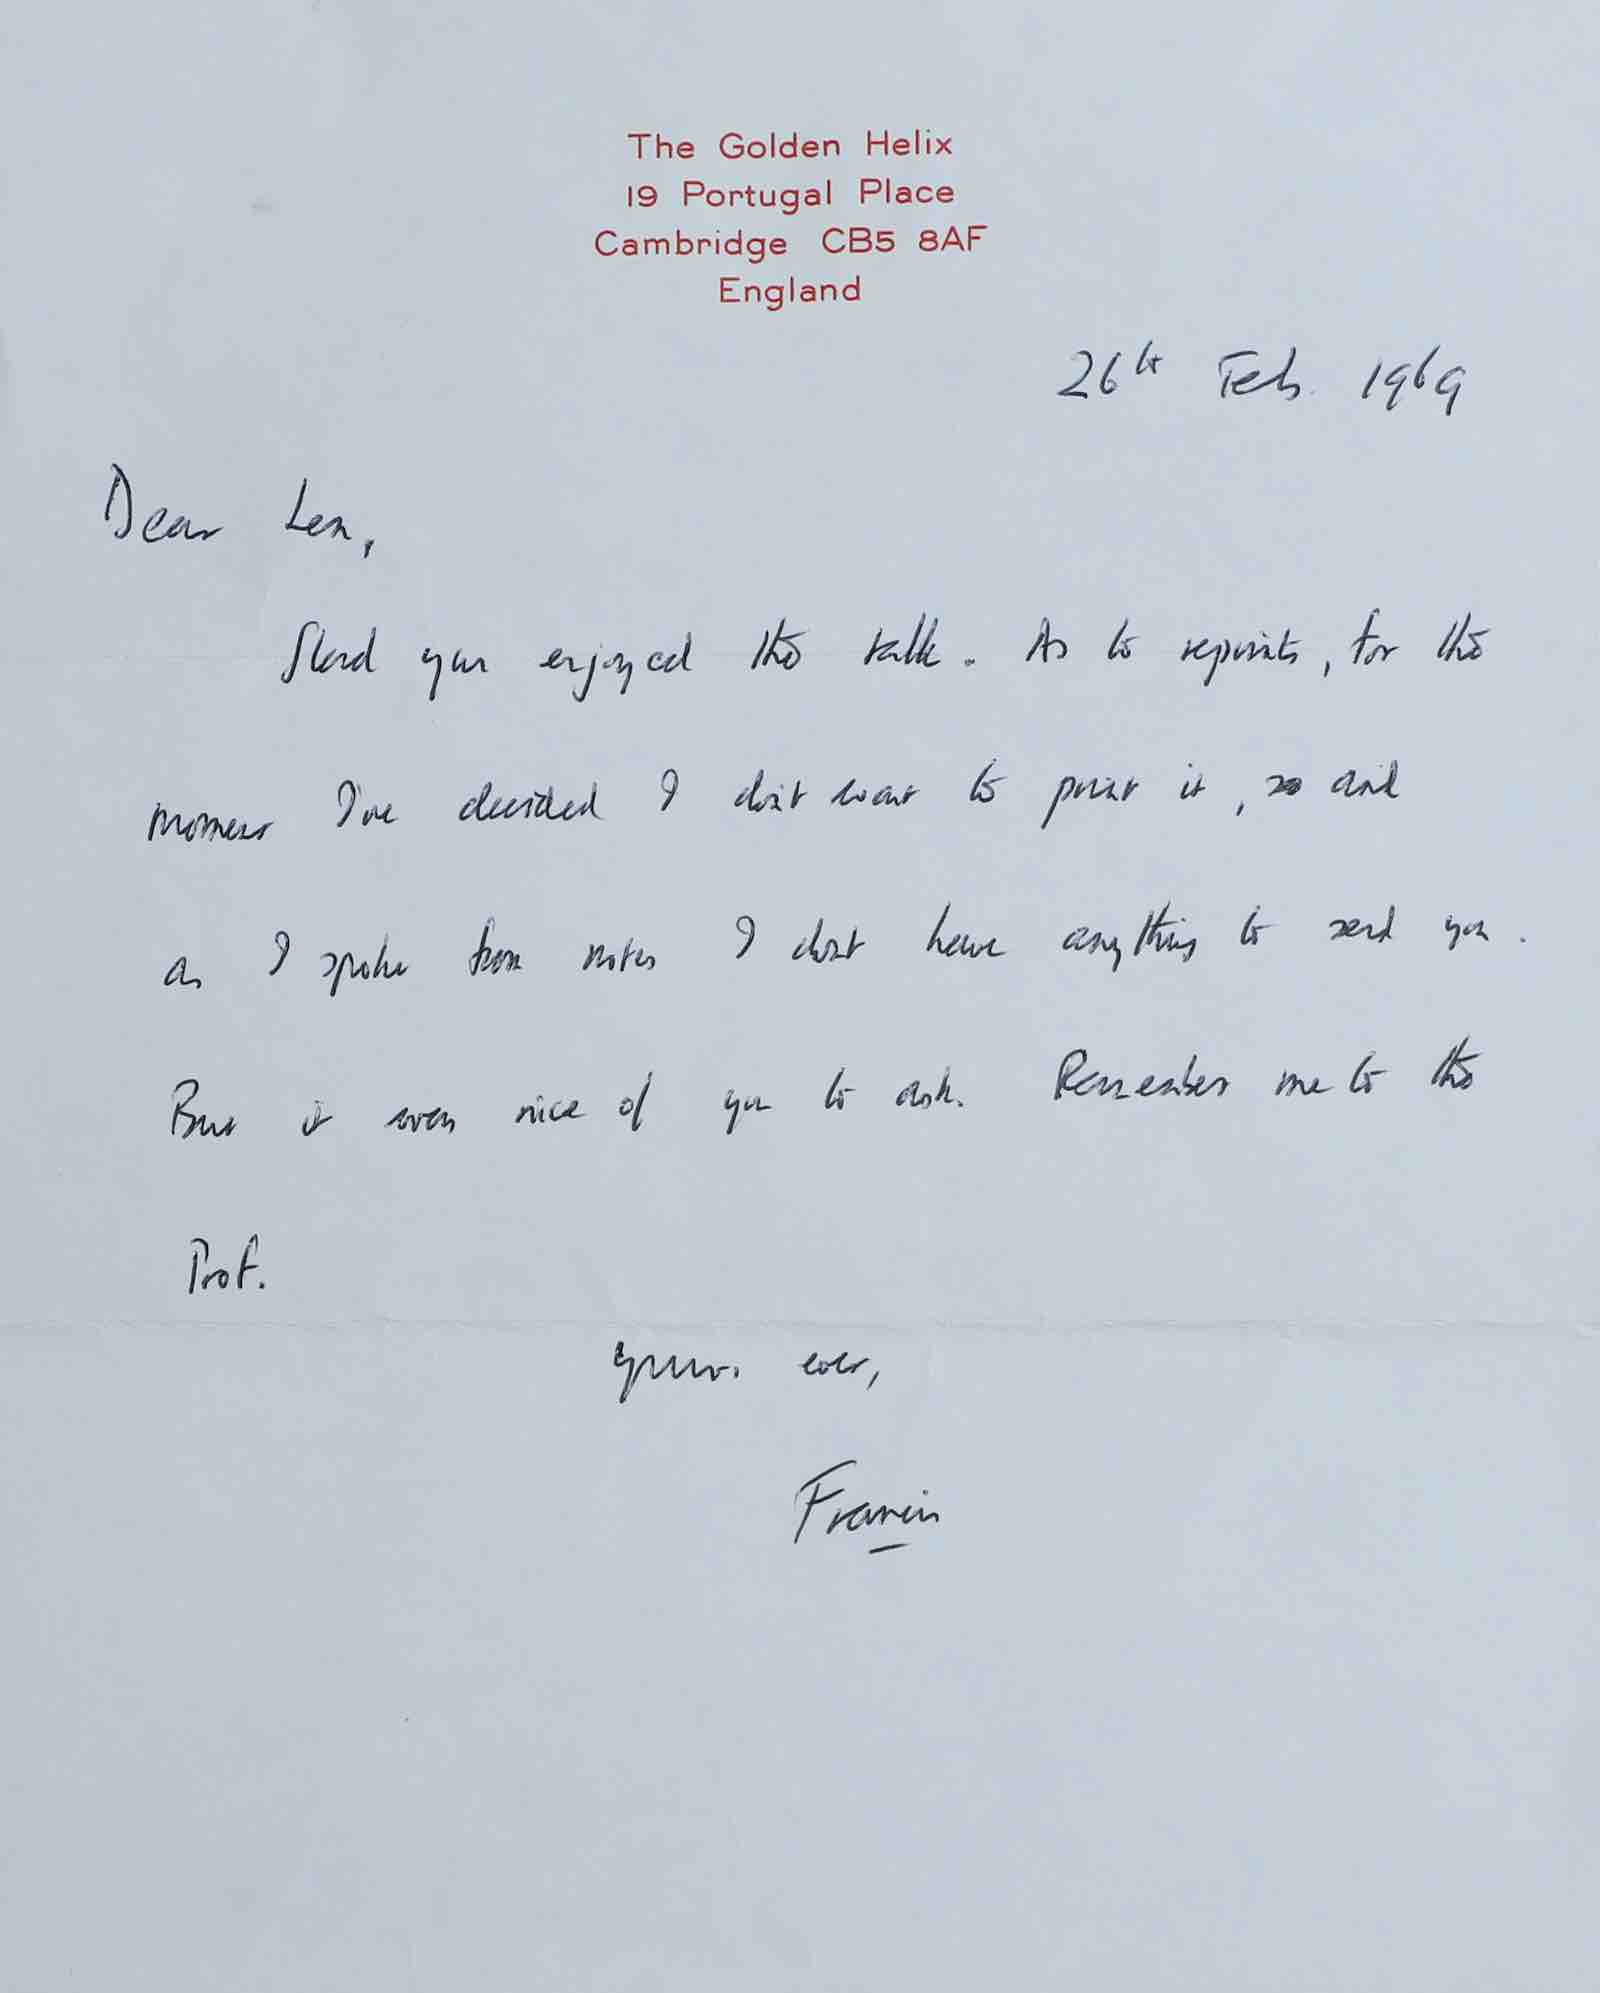 The Golden Helix
19 Portugal Place
Cambridge CB5 8AF
England
26th Feb. 1969
Dear Len,
Glad you enjoyed the talk. As to reprints, for the
moment I've decided I don't want to print it, and
as I spoke from notes I don't have anything to send you.
But it was nice of you to ask. Remember me to the
Prof.
Yours ever,
Francis